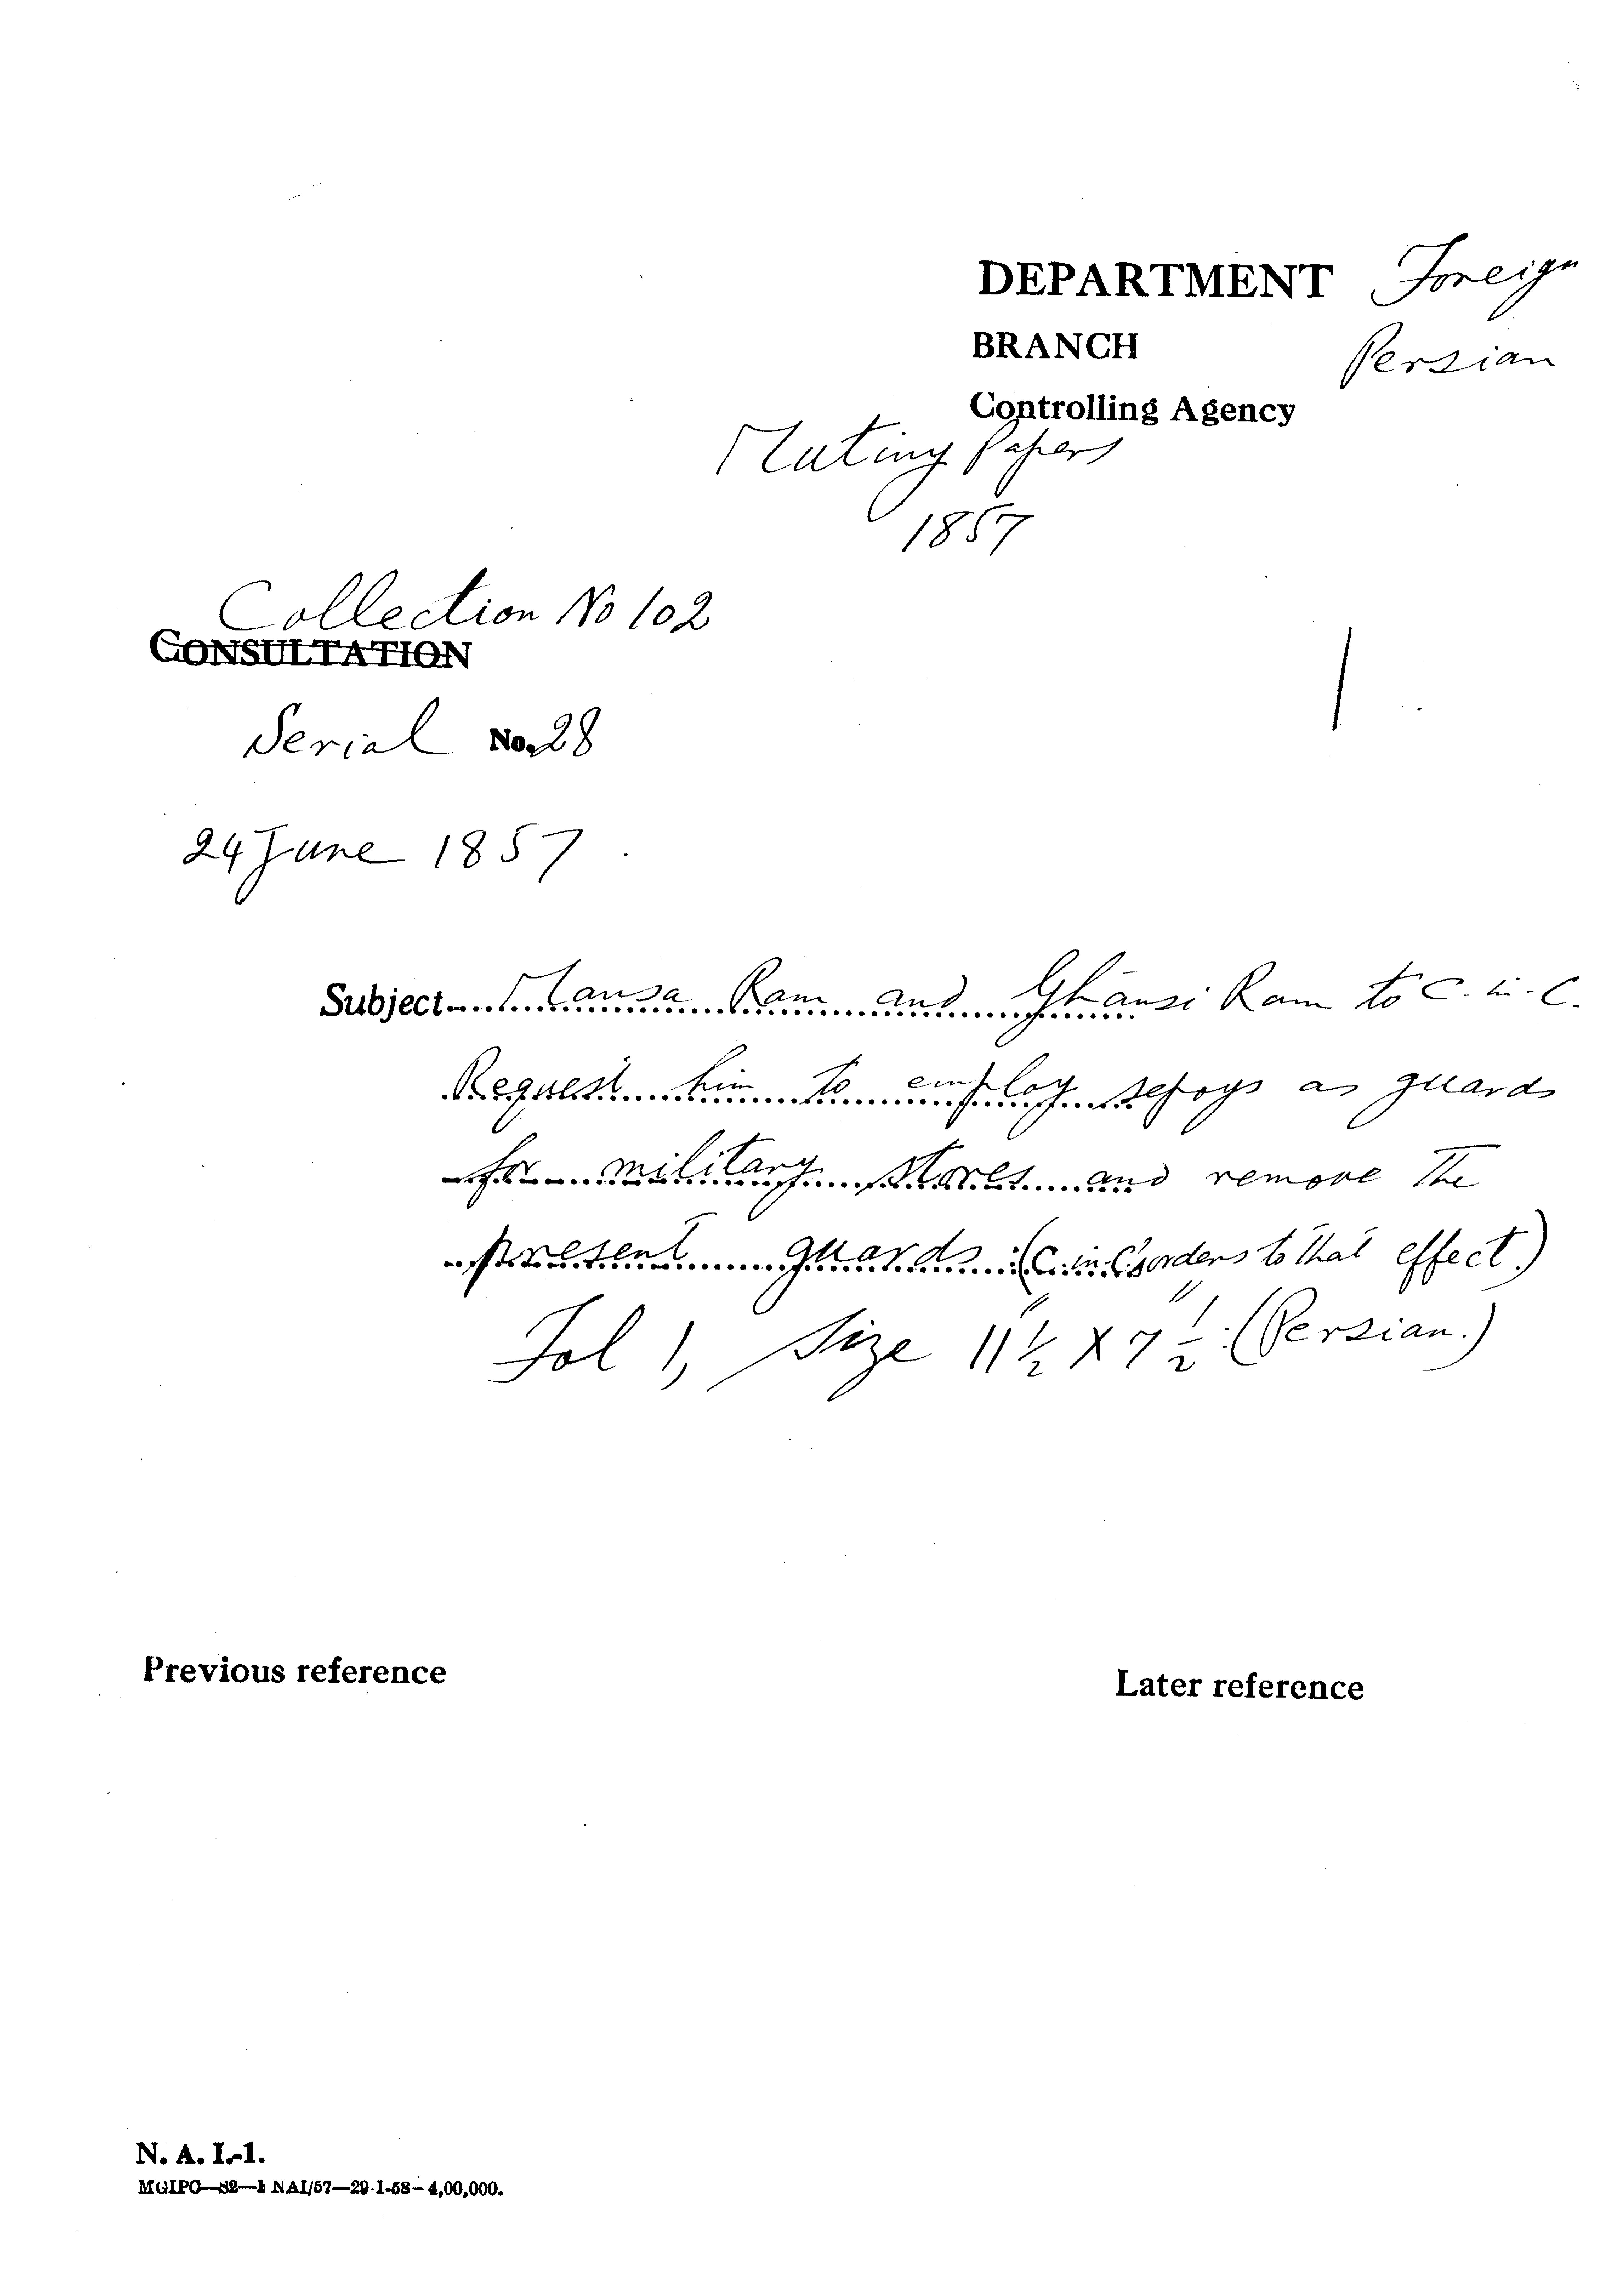 DEPARTMENT Foreign
BRANCH Persian
Controlling Agency
Mutiny Papers
1857
Collection No 102
CONSULTATION
Serial No. 28
24 June 1857
Subject Mansa Ram and Ghānsi Ram to C.-in-C.
Request him to employ sepoys as guards
for military stores and remove the
present guards (C.-in-C's orders to that effect.)
Fol 1, Size 11 1/2" X 7 1/2" (Persian.)
Previous reference
Later reference
N. A. I.-1.
MGIPC—S2—1 NAI/57—29-1-58—4,00,000.